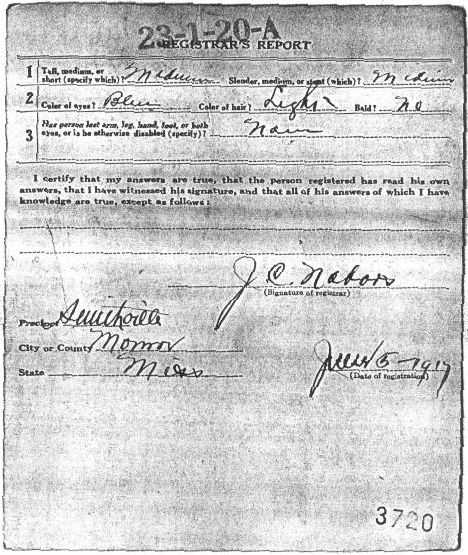 23-1-20-A
REGISTRAR'S REPORT
1 Tall, medium, or short (specify which)? Medium Slender, medium, or stout (which)? Medium
2 Color of eyes? Blue Color of hair? Light Bald? No
3 Has person lost arm, leg, hand, foot, or both eyes, or is he otherwise disabled (specify)? None
I certify that my answers are true, that the person registered has read his own
answers, that I have witnessed his signature, and that all of his answers of which I have
knowledge are true, except as follows:
J. C. Nabors
(Signature of registrar)
Precinct Smithville
City or County Monroe
State Miss
June 5-1917
(Date of registration)
3720